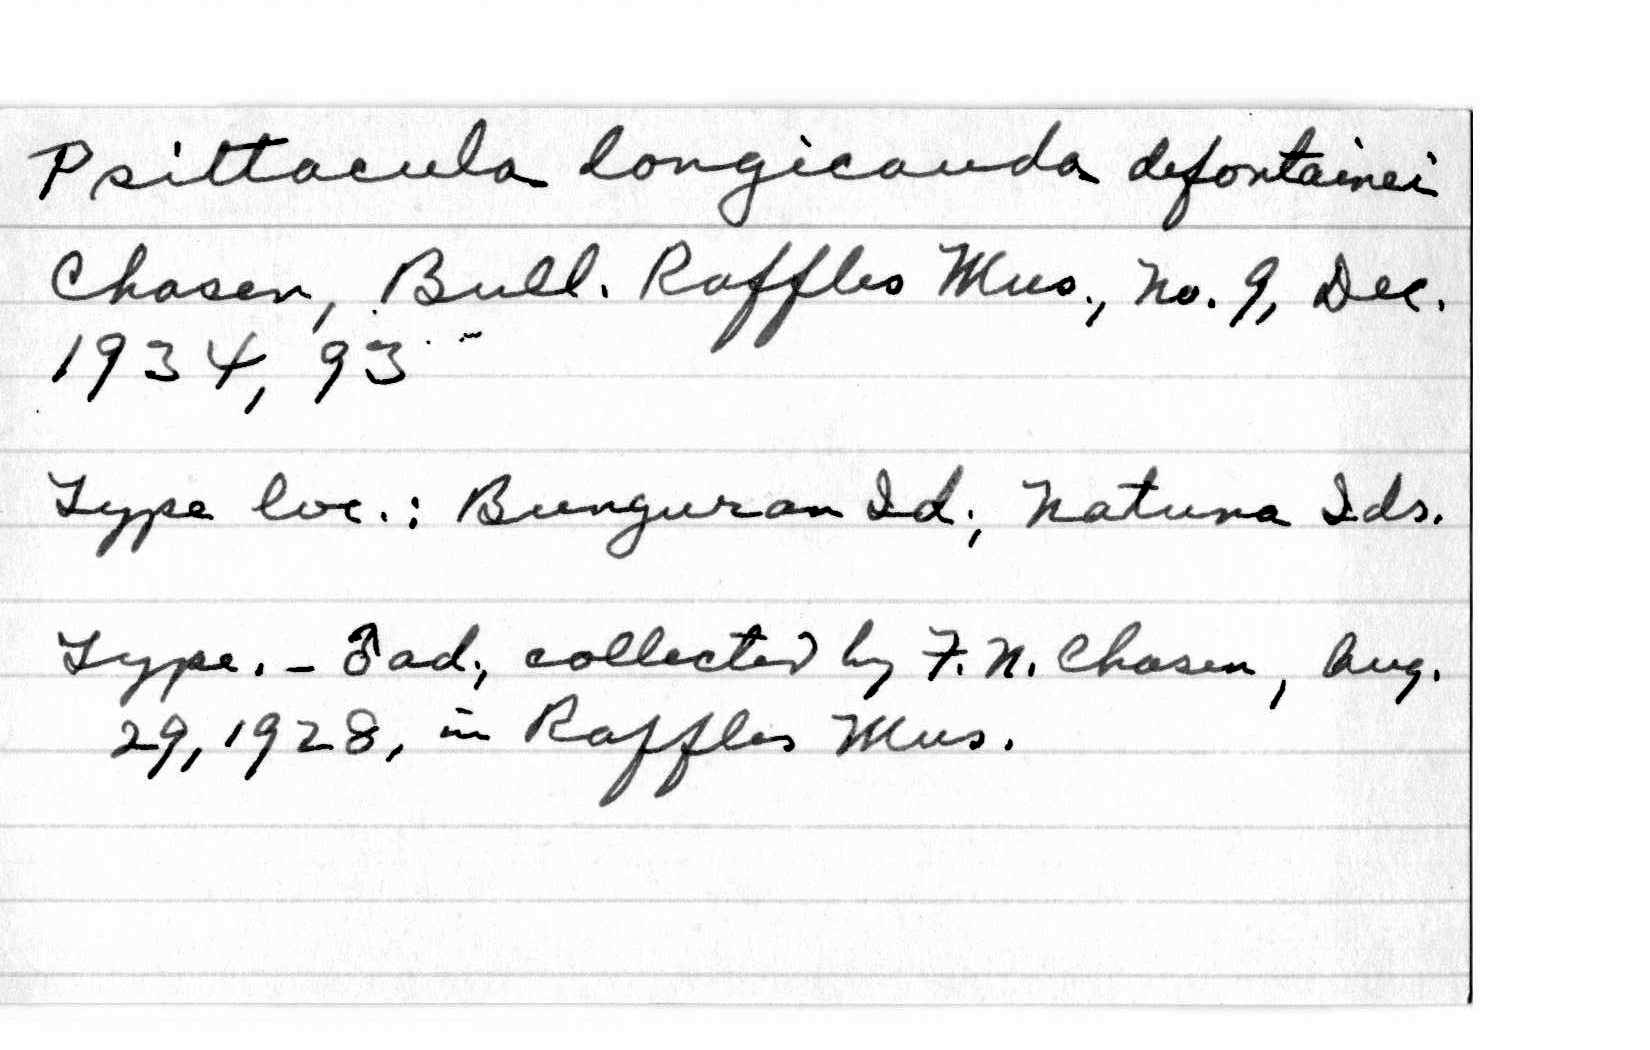 Psittacula longicauda defontainei
Chasen, Bull. Raffles Mus., No. 9, Dec.
1934, 93
Type loc.: Bunguran Id., Natuna Ids.
Type. - ♂ ad., collected by F. N. Chasen, Aug.
29, 1928, in Raffles Mus.